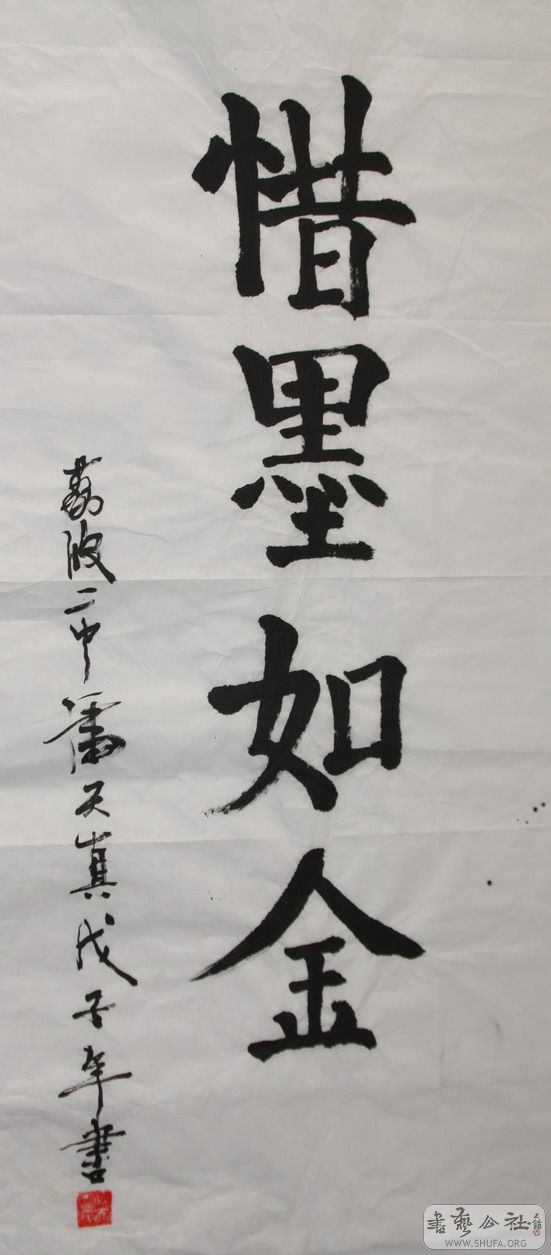 惜墨如金
荔波二中潘天真戊子年书
書藝公社
WWW.SHUFA.ORG